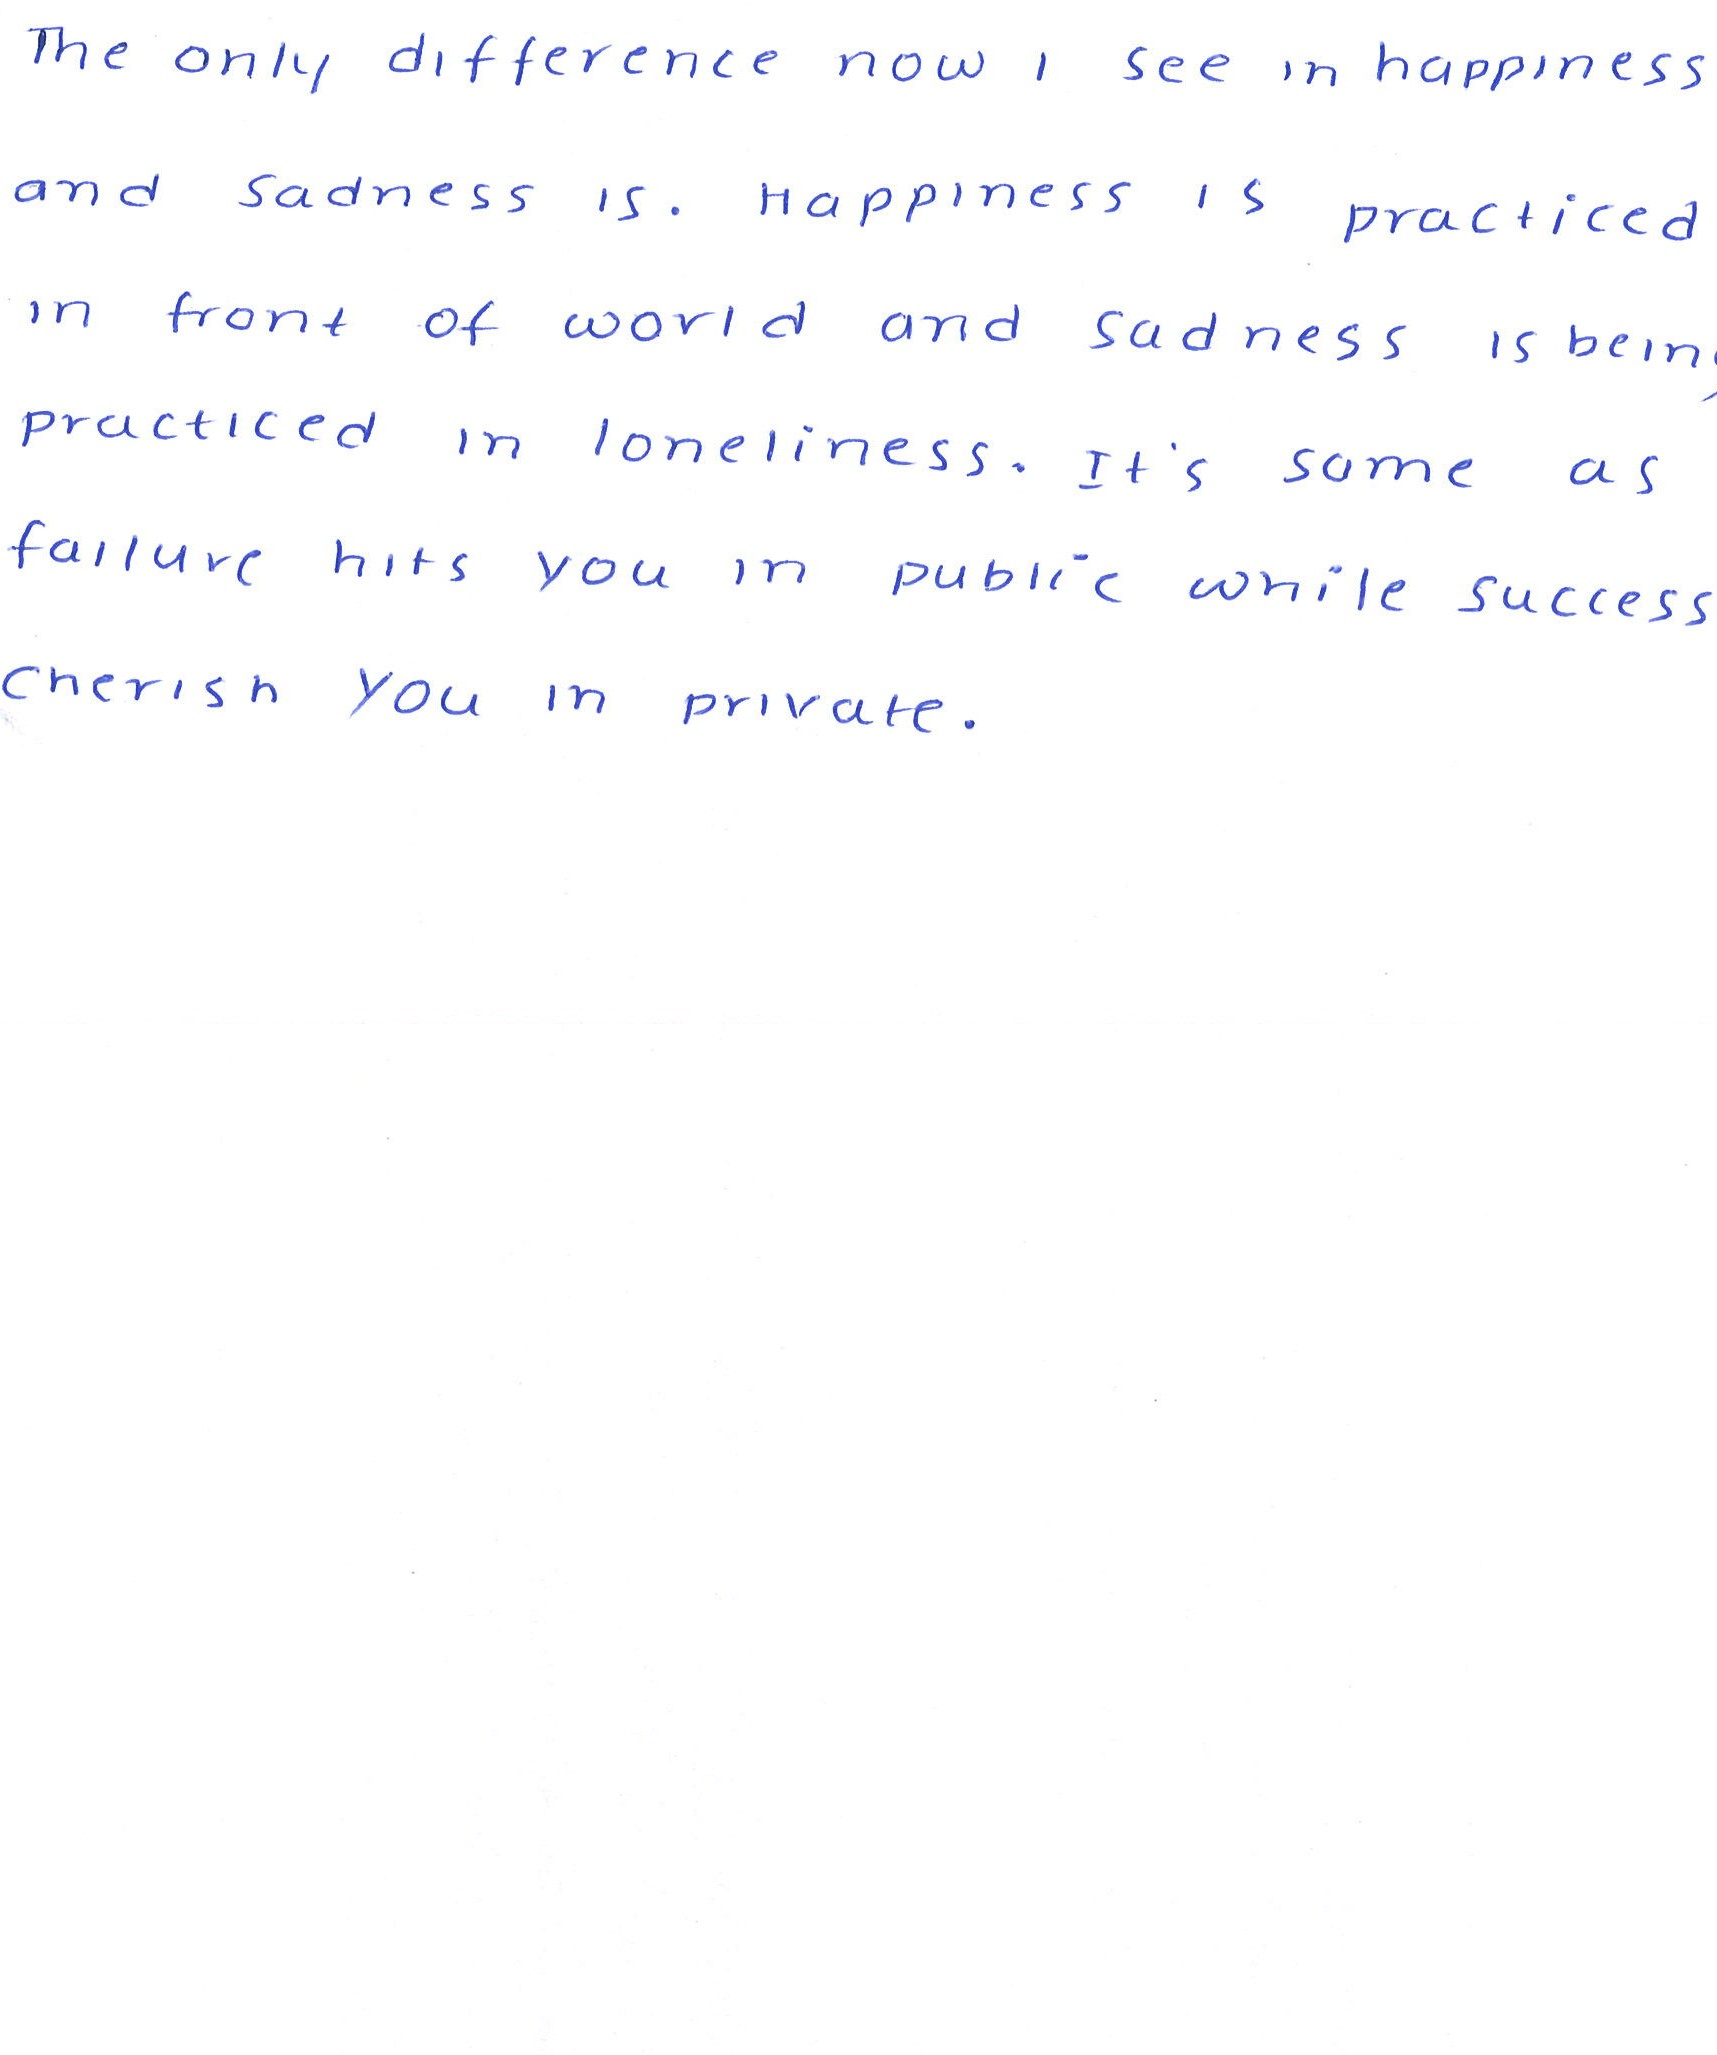 The only difference now i see in happiness
and sadness is. Happiness is practiced
in front of world and sadness is being
practiced in loneliness. It's same as
failure hits you in public while success
cherish you in private.